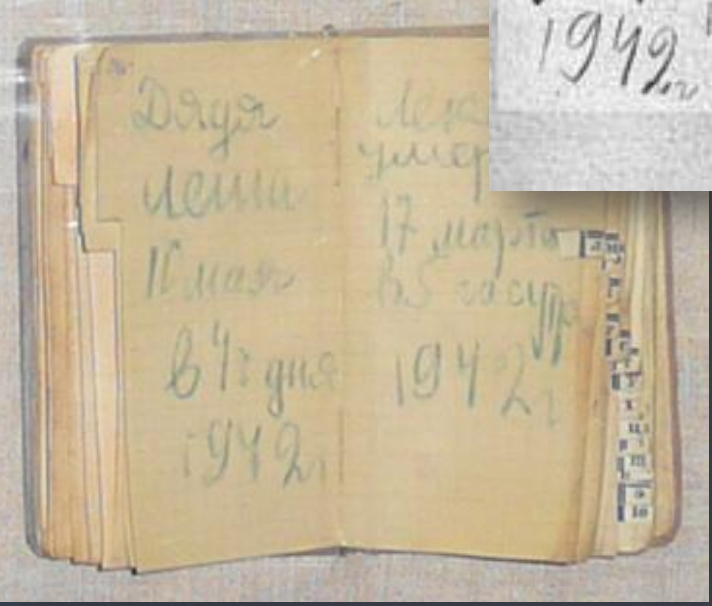 Дядя
Леша
10 мая
в 4 ч дня
1942 г
Лек
умер
17 марта
в 5 час утр
1942 г
1942 г